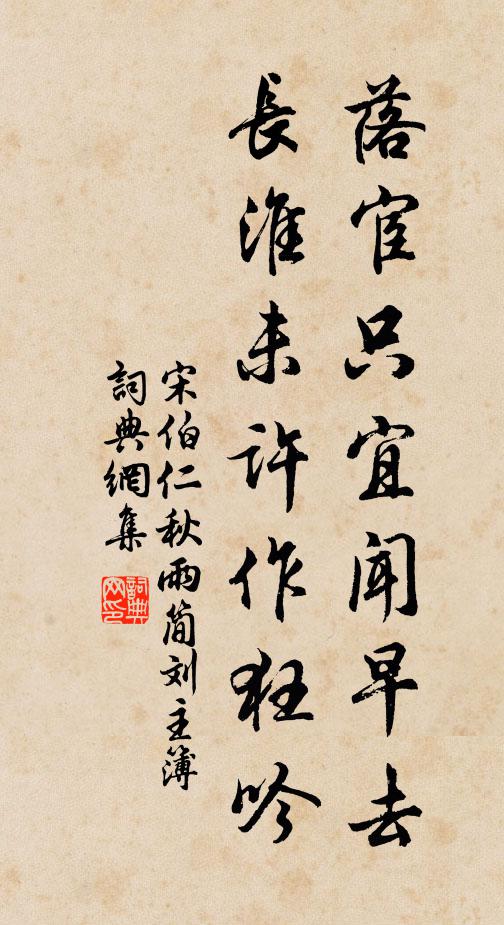 落宦只宜聞早去
長淮未許作狂吟
宋伯仁秋雨簡刘主簿
詞典網集
詞典网印